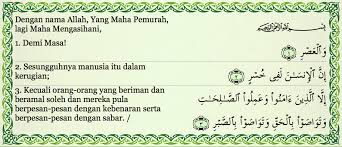 Dengan nama Allah, Yang Maha Pemurah,
lagi Maha Mengasihani,
1. Demi Masa!
وَٱلْعَصْرِ ۝١
2. Sesungguhnya manusia itu dalam
kerugian;
إِنَّ ٱلْإِنسَـٰنَ لَفِى خُسْرٍ ۝٢
3. Kecuali orang-orang yang beriman dan
beramal soleh dan mereka pula
berpesan-pesan dengan kebenaran serta
berpesan-pesan dengan sabar. /
إِلَّا ٱلَّذِينَ ءَامَنُوا۟ وَعَمِلُوا۟ ٱلصَّـٰلِحَـٰتِ
وَتَوَاصَوْا۟ بِٱلْحَقِّ وَتَوَاصَوْا۟ بِٱلصَّبْرِ ۝٣